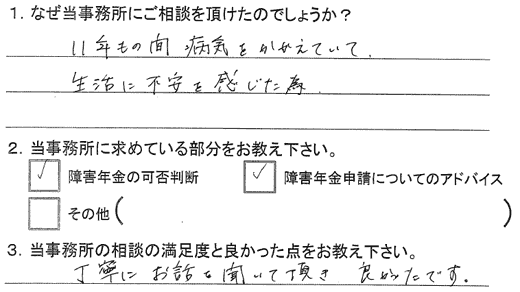 1. なぜ当事務所にご相談を頂けたのでしょうか？
11年もの間 病気をかかえていて、
生活に不安を感じた為、
2. 当事務所に求めている部分をお教え下さい。
✓ 障害年金の可否判断 ✓ 障害年金申請についてのアドバイス
その他（ ）
3. 当事務所の相談の満足度と良かった点をお教え下さい。
丁寧にお話を聞いて頂き 良かったです。